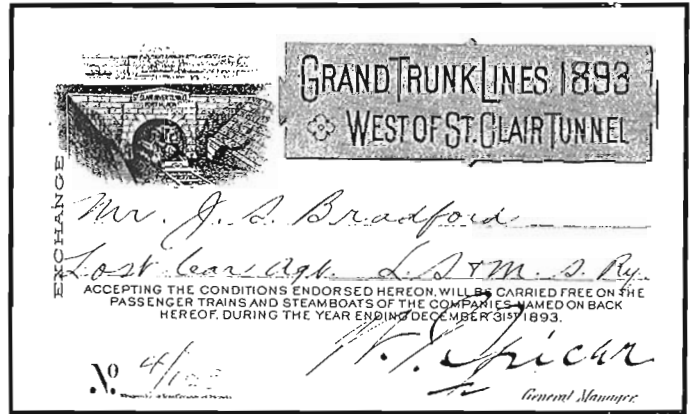 GRAND TRUNK LINES. 1893
WEST OF ST. CLAIR TUNNEL
ST. CLAIR RIVER TUNNEL
EXCHANGE
Mr. J. S. Bradford
Lost Car Agt. L. S & M. S. Ry.
ACCEPTING THE CONDITIONS ENDORSED HEREON, WILL BE CARRIED FREE ON THE
PASSENGER TRAINS AND STEAMBOATS OF THE COMPANIES NAMED ON BACK
HEREOF, DURING THE YEAR ENDING DECEMBER 31ST 1893.
W. J. Spicer
No
General Manager.